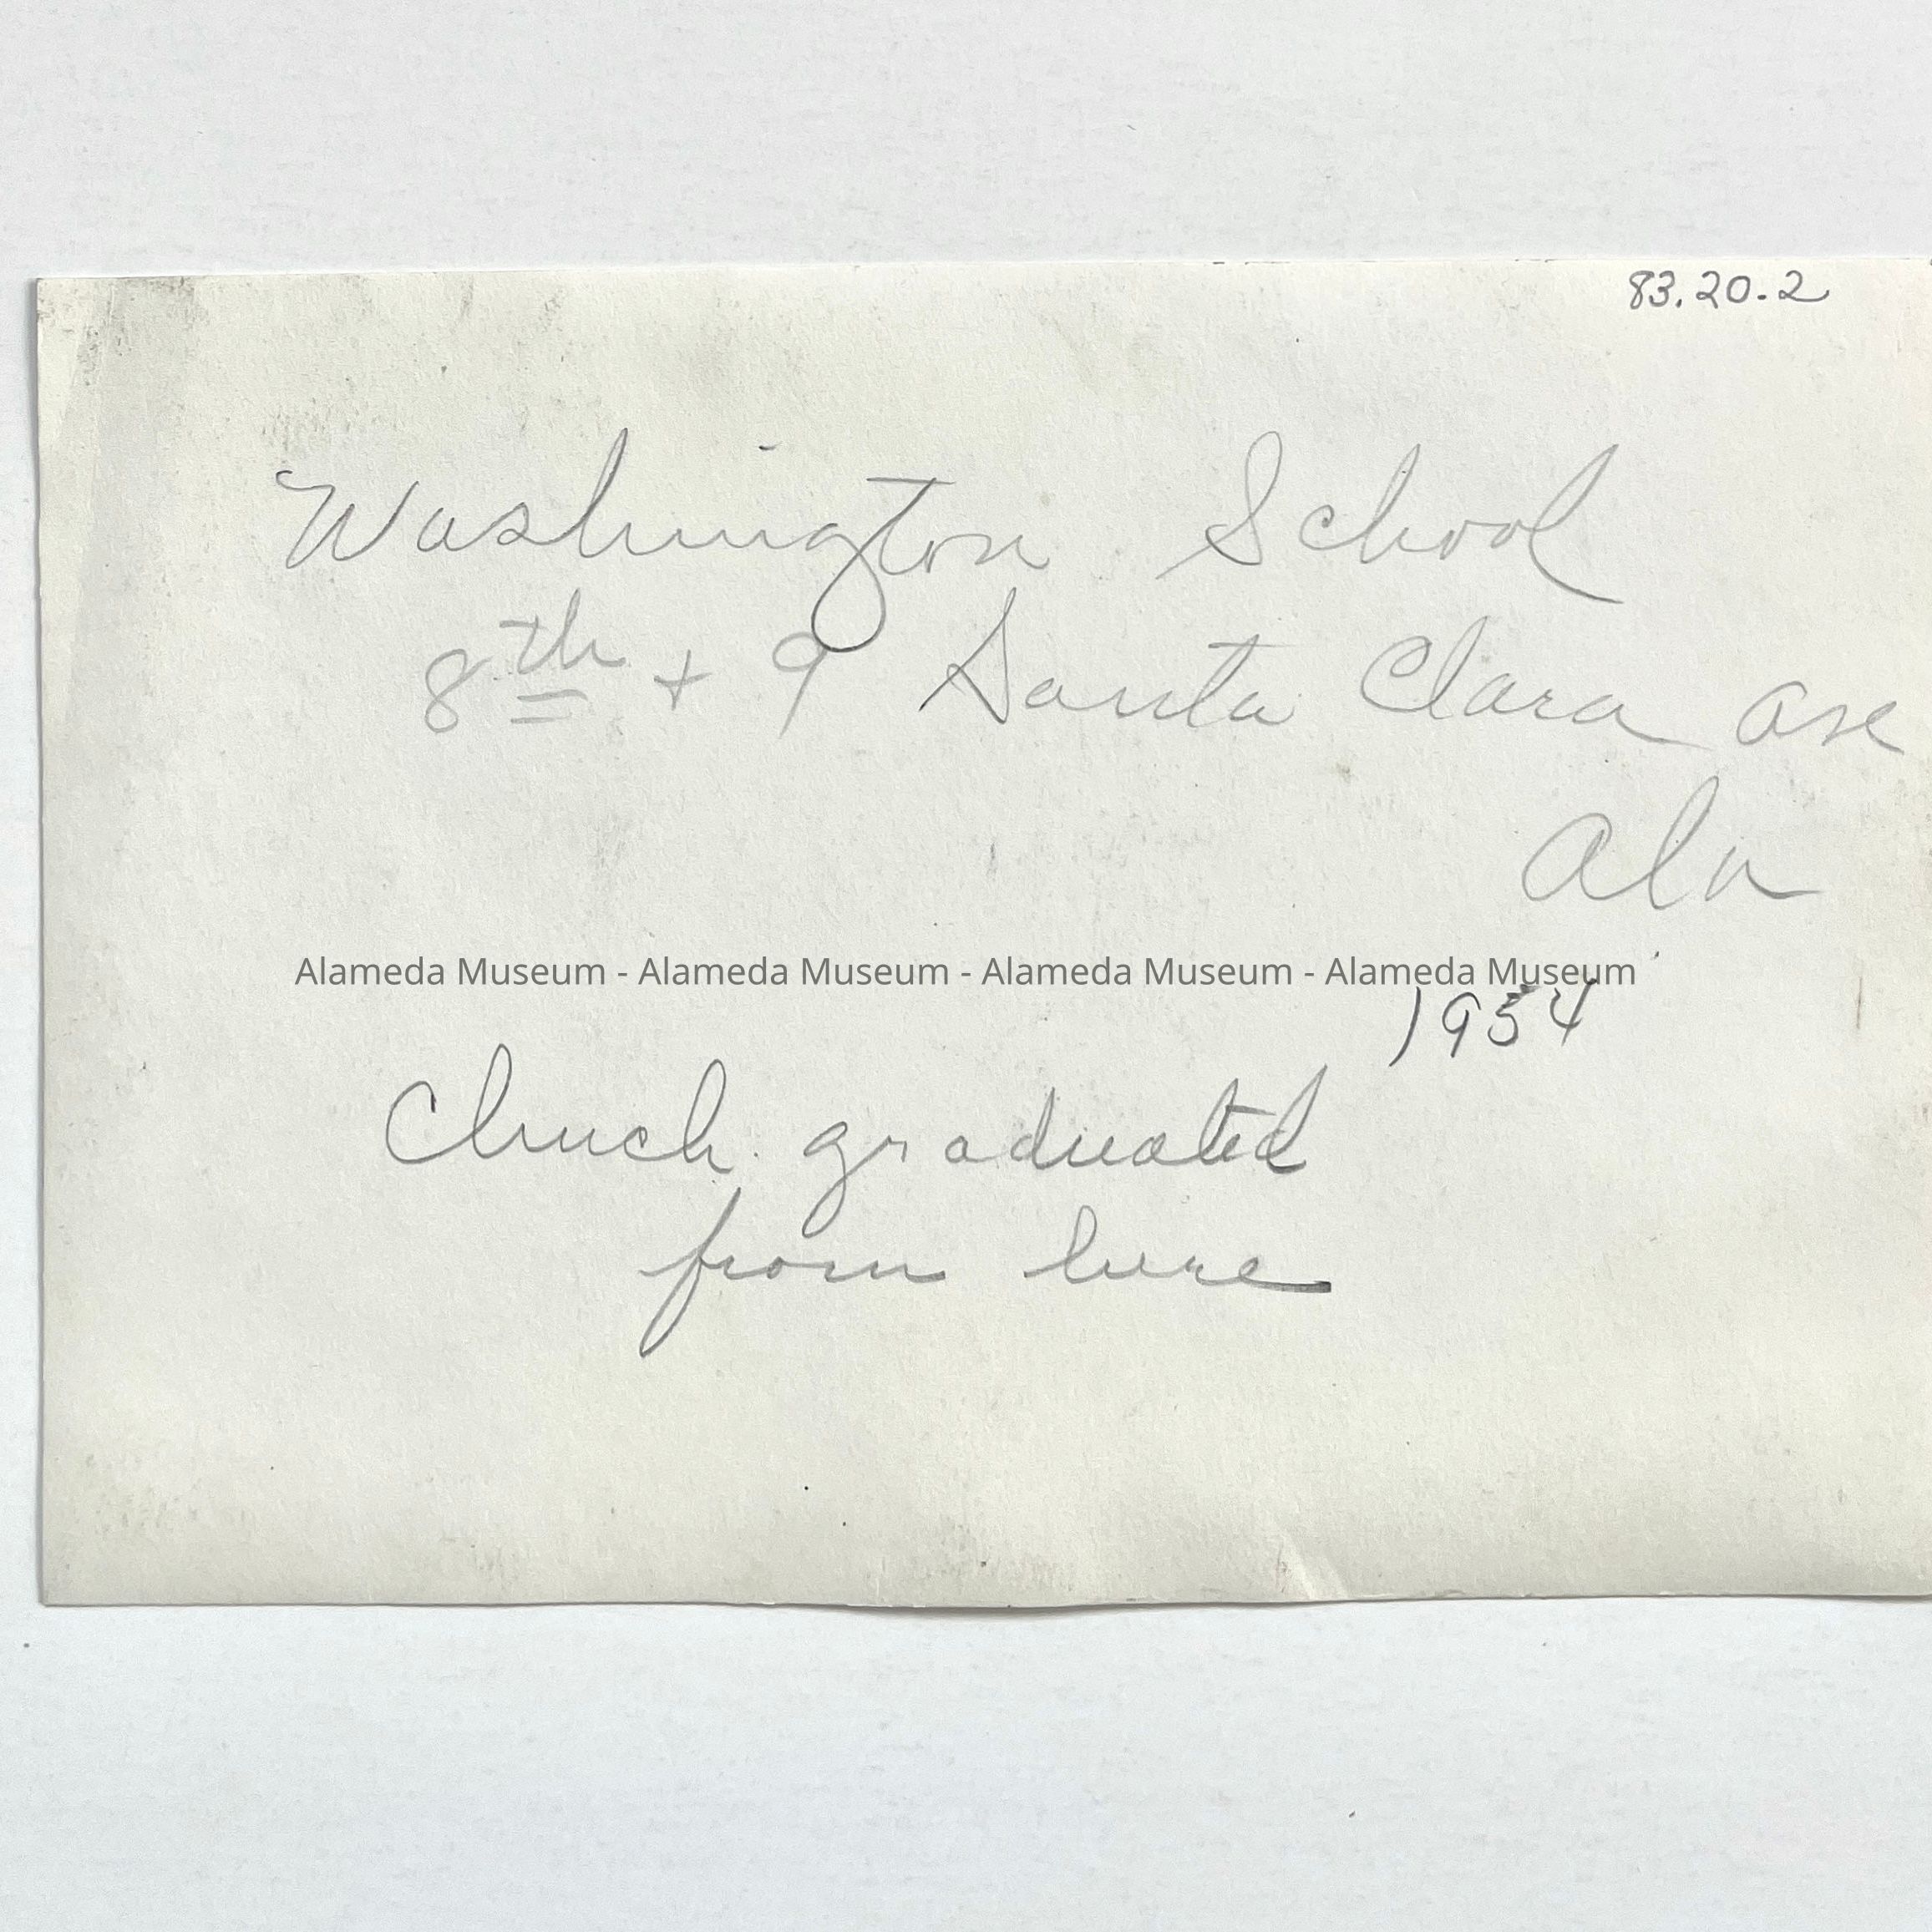 83.20-2
Washington School
8th + 9 Santa Clara ave
Ala
Alameda Museum - Alameda Museum - Alameda Museum - Alameda Museum
1934
Chuck graduated
from here